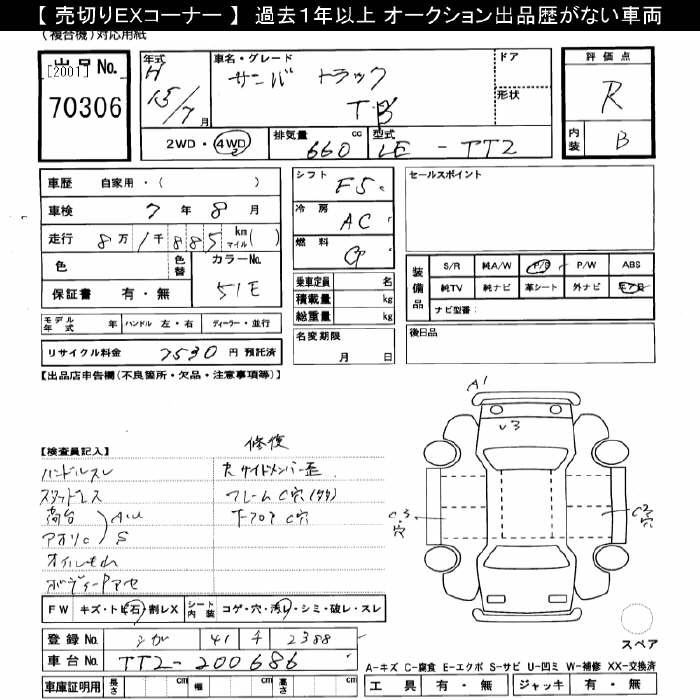 【 売切りEXコーナー 】 過去１年以上 オークション出品歴がない車両
(複合機)対応用紙
出品 No.
[2001]
70306
年式
H
15/7 月
車名・グレード
サンバ トラック
TB
ドア
形状
2WD・4WD
排気量
660 cc
型式
LE - TT2
評価点
R
内装
B
車歴 自家用・( )
車検 7 年 8 月
走行 8万 1千 885 km マイル( )
色
色替
カラーNo.
51E
保証書 有・無
モデル年式 年
ハンドル 左・右
ディーラー・並行
リサイクル料金 7530 円 預託済
シフト
F5
冷房
AC
燃料
G
乗車定員 名
積載量 kg
総重量 kg
名変期限
月 日
セールスポイント
装備品
S/R 純A/W P/S P/W ABS
純TV 純ナビ 革シート 外ナビ エアB
ナビ型番:
後日品
【出品店申告欄(不良箇所・欠品・注意事項等)】
【検査員記入】
ハンドルスレ
スタッドレス
荷台
アオリc
AUU
S
オイルもれ
修復
右サイドメンバー歪
フレームC穴
下フロアC穴
A1
U3
C3
穴
C2
穴
FW キズ・トビ石・割レX
シート内装 コゲ・穴・汚レ・シミ・破レ・スレ
登録 No. シガ 41 チ 2388
車台 No. TT2-200686
車庫証明用 長さ cm 幅 cm 高さ cm
スペア
A-キズ C-腐食 E-エクボ S-サビ U-凹ミ W-補修 XX-交換済
工具 有・無 ジャッキ 有・無